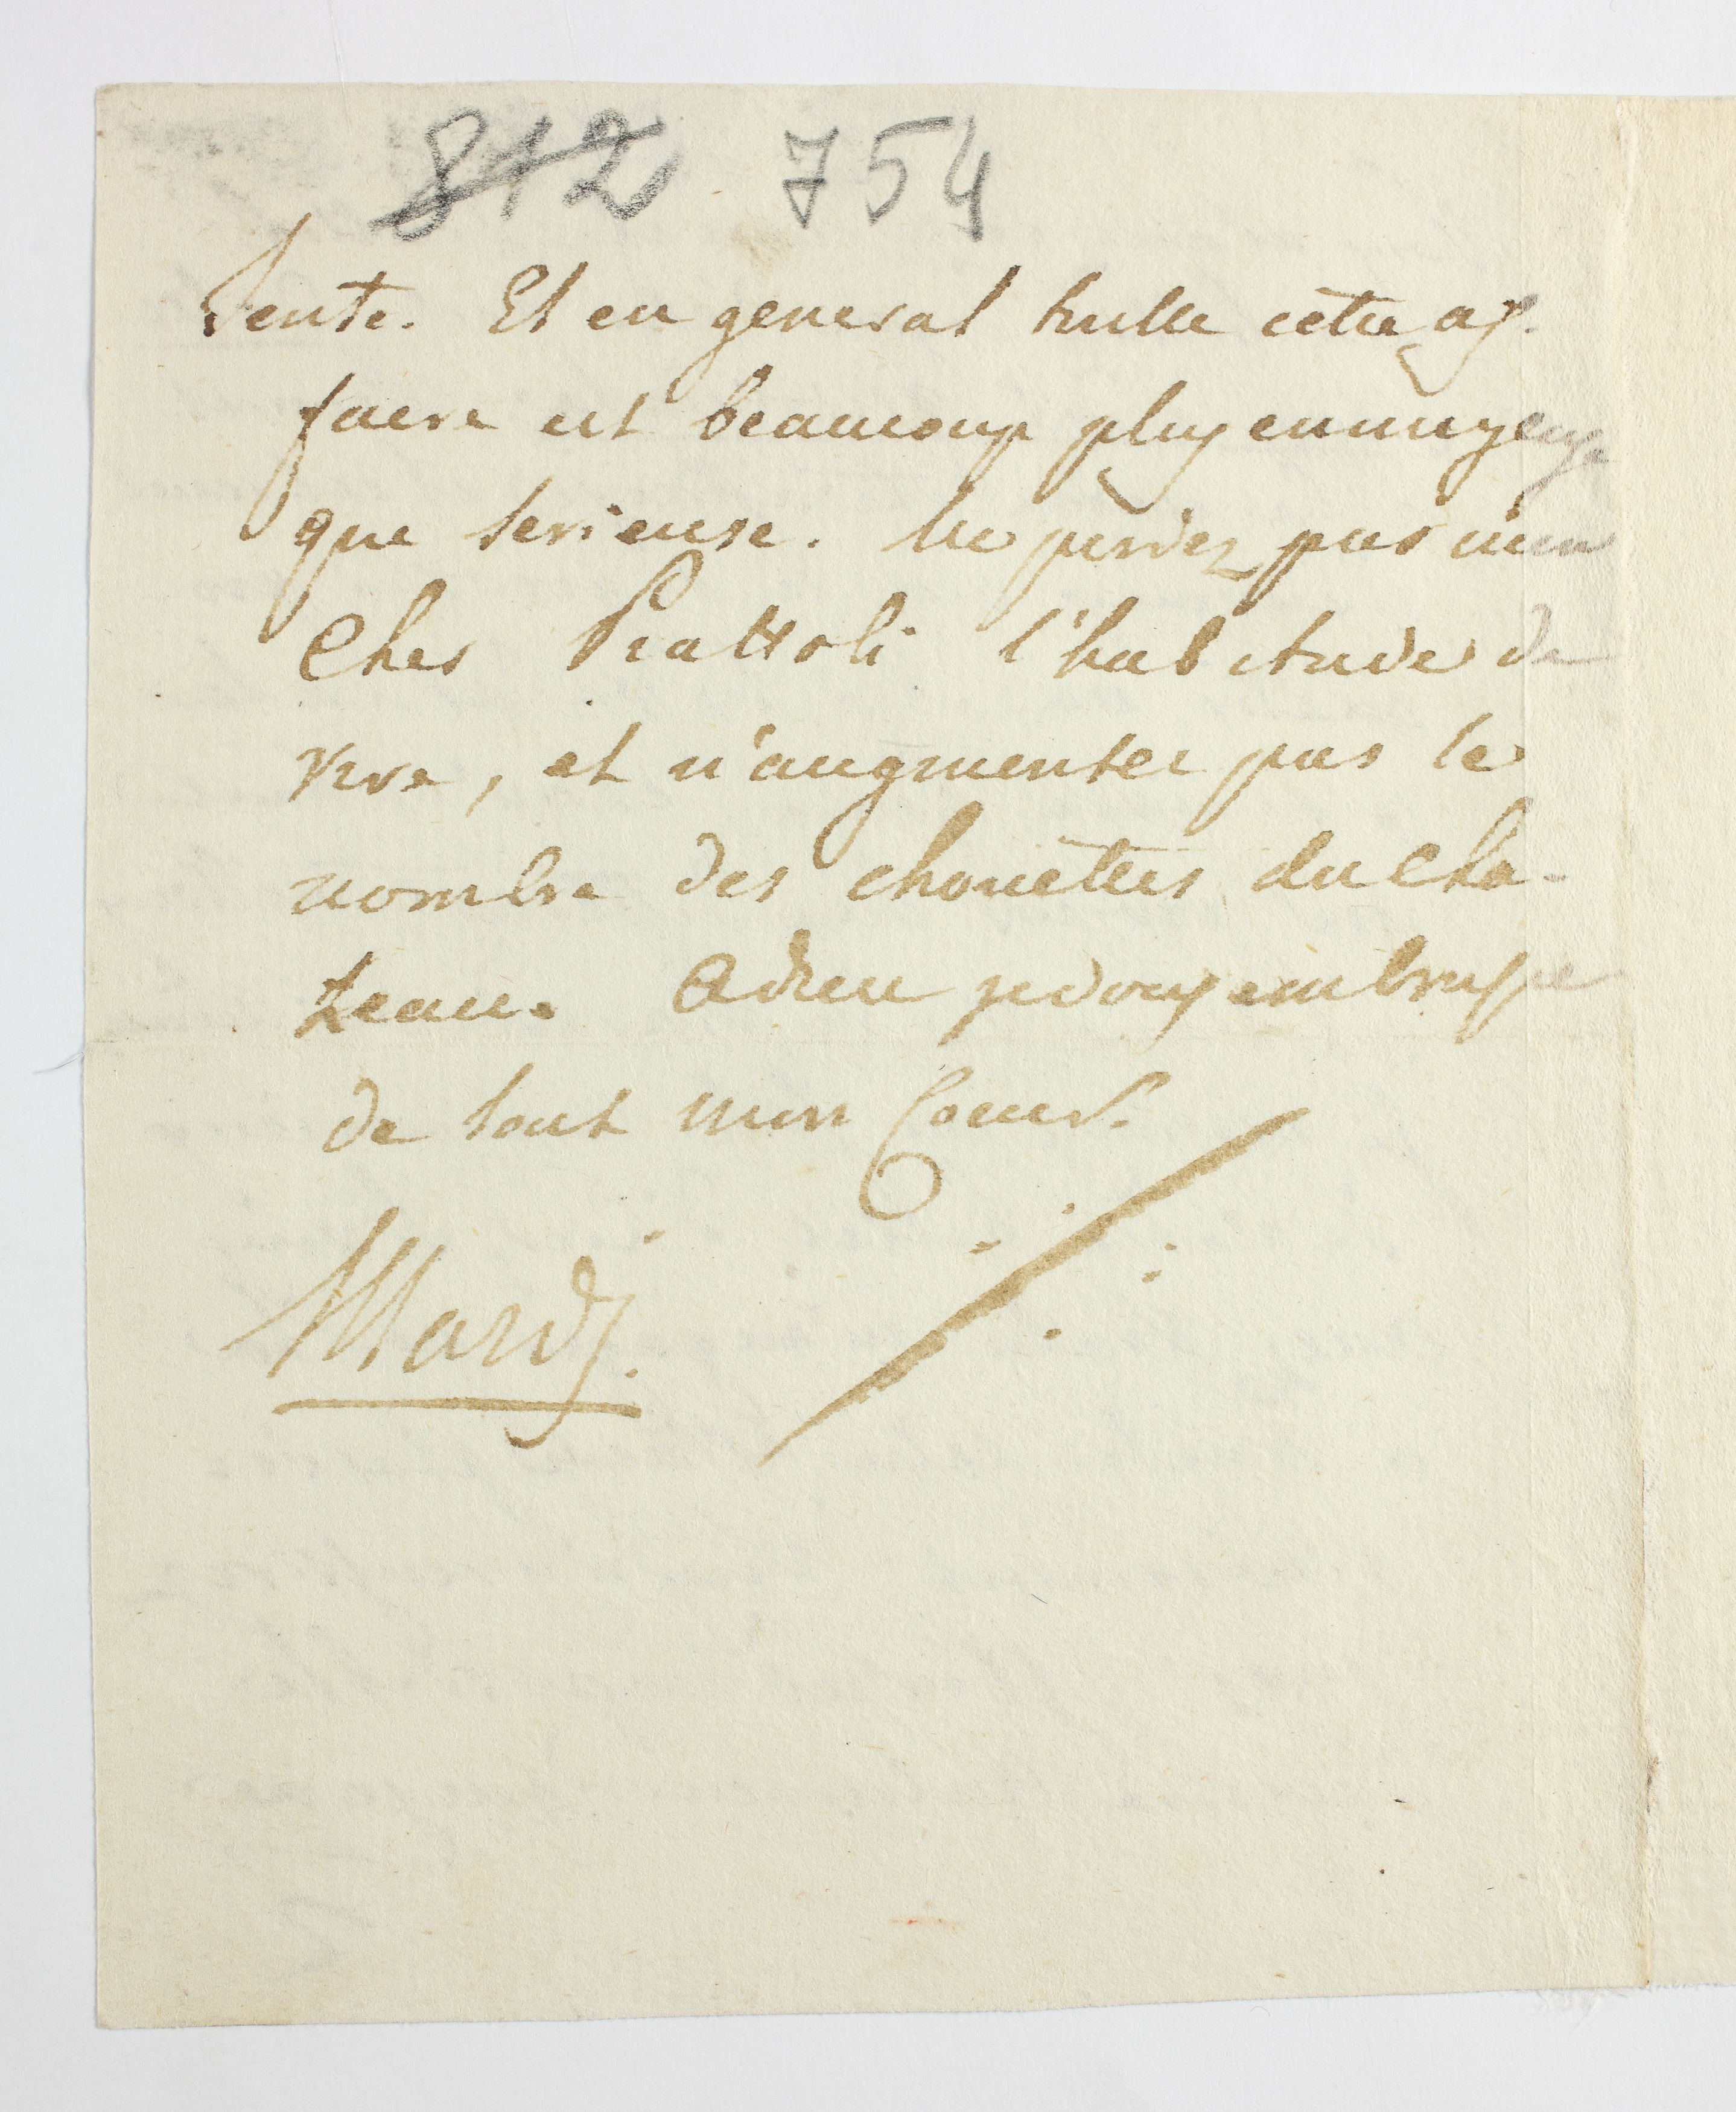 812 754
sente. Et en general toutte cette af-
faire est beaucoup plus ennuyeuse
que serieuse. Ne perdez pas mon
Cher Piattoli l'habitude de
rire, et n'augmentez pas le
nombre des chouëttes du Cha-
teau. Adieu je vous embrasse
de tout mon Coeur.
Mardi.